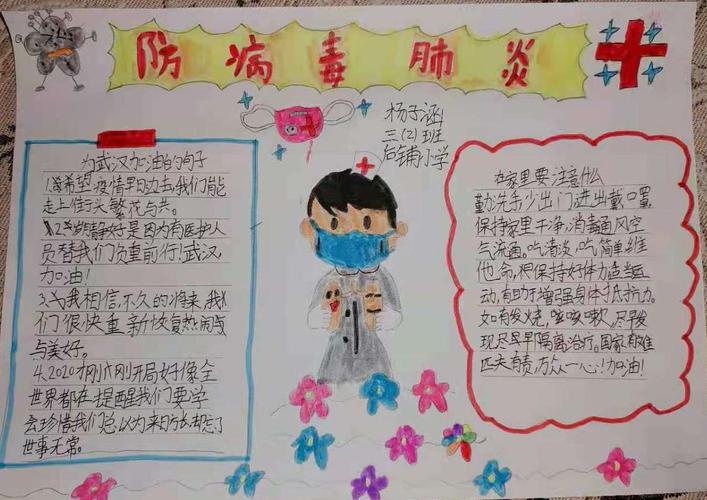 防病毒肺炎
杨子涵
三(2)班
后铺小学
为武汉加油的句子
1.希望疫情早日过去,我们能
走上街头繁花与共。
2.岁月静好是因为有医护人
员替我们负重前行!武汉
加油!
3.我相信,不久的将来,我
们很快重新恢复热闹
与美好。
4.2020才刚刚开局好像全
世界都在提醒我们要学
会珍惜我们总以为来日方长却忘了
世事无常。
在家里要注意什么
勤洗手少出门进出戴口罩
保持家里干净,消毒通风空
气流通。吃清淡,吃简单维
他命,积保持好体力适当运
动,有助于增强身体抵抗力。
如有发烧,咳嗽,尽早发
现尽早隔离治疗。国家有难
匹夫有责万众一心!加油!